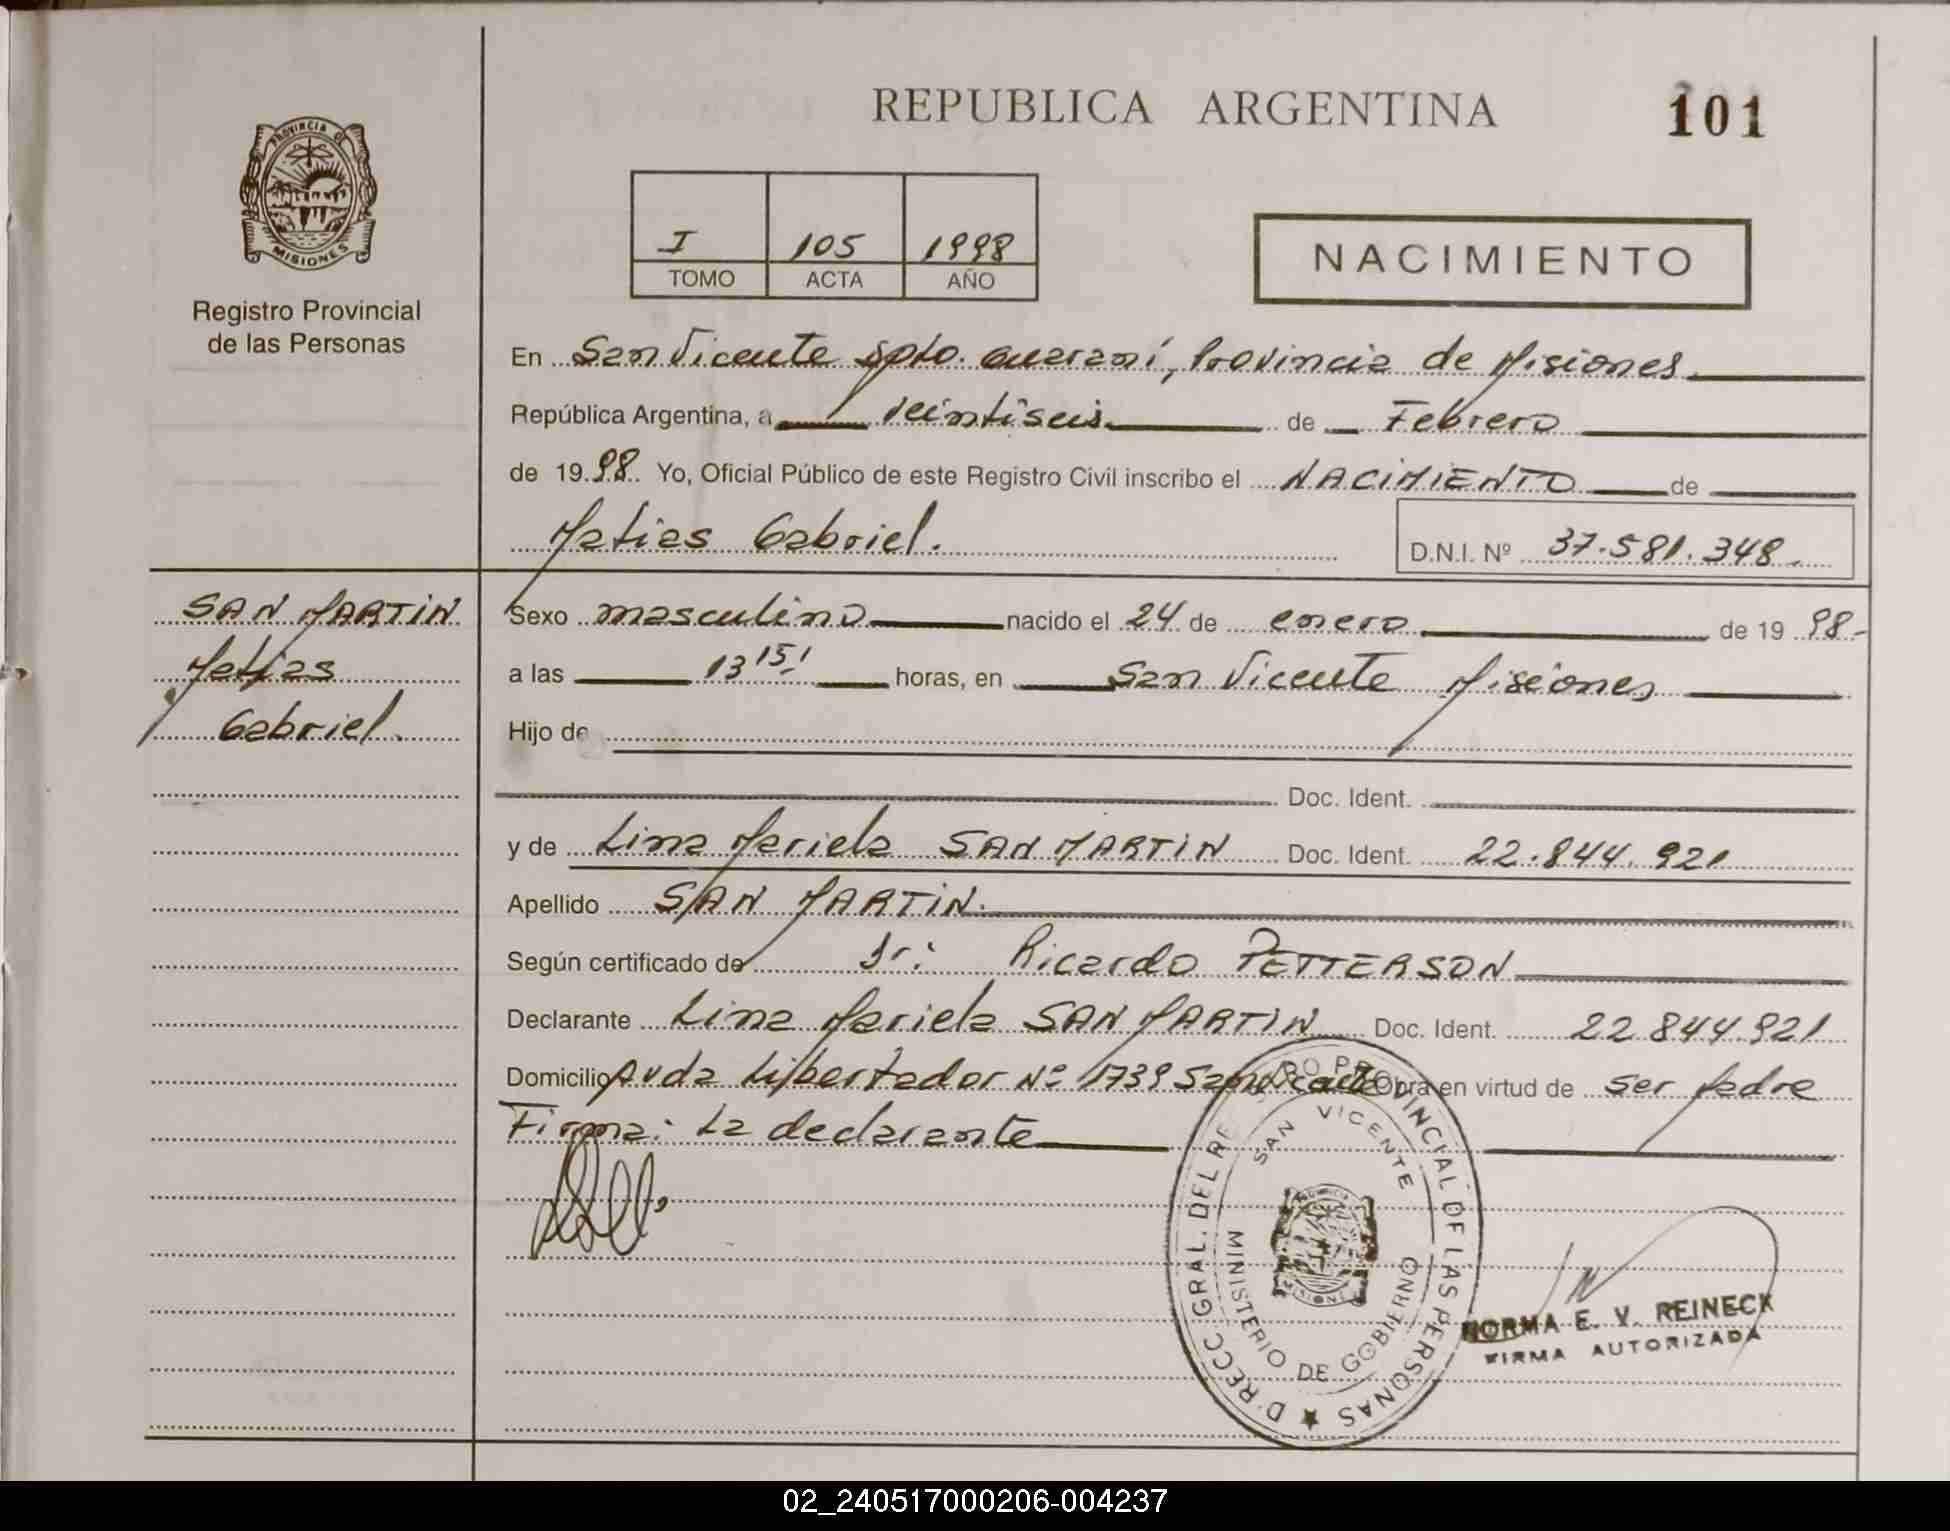 REPUBLICA ARGENTINA
101
PROVINCIA DE
MISIONES
Registro Provincial
de las Personas
I 105 1998
TOMO ACTA AÑO
NACIMIENTO
En San Vicente Dpto. Guaraní, Provincia de Misiones
República Argentina, a veintiseis de Febrero
de 1998. Yo, Oficial Público de este Registro Civil inscribo el NACIMIENTO de
Matias Gabriel.
D.N.I. Nº 37.581.348
SAN MARTIN
Matias
Gabriel.
Sexo masculino nacido el 24 de enero de 1998-
a las 13 15' horas, en San Vicente Misiones
Hijo de
Doc. Ident.
y de Lina Mariela SAN MARTIN Doc. Ident. 22.844.921
Apellido SAN MARTIN.
Según certificado de Dr: Ricardo PETTERSON
Declarante Lina Mariela SAN MARTIN Doc. Ident. 22.844.921
Domicilio Avda Libertador Nº 1739 San Vicente Obra en virtud de ser Madre
Firma: La declarante
DIRECC. GRAL. DEL REGISTRO PROVINCIAL DE LAS PERSONAS
SAN VICENTE
MINISTERIO DE GOBIERNO
NORMA E. V. REINECK
FIRMA AUTORIZADA
02_240517000206-004237